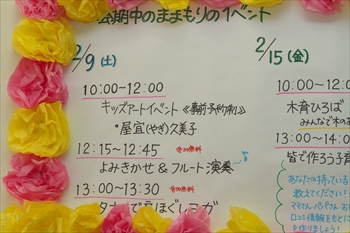 会期中のままもりのイベント
2/9(土)
10:00~12:00
キッズアートイベント《事前予約制》
・屋宜(やぎ)久美子
12:15~12:45 参加無料
よみきかせ&フルート演奏
13:00~13:30 参加無料
2/15(金)
10:00~
木育ひろば
みんなで木の
13:00~14:0
皆で作ろう子育
あなたの持っている
教えてください!
ママさん、パパさん、お
口コミ情報をもとに
を作りましょう!